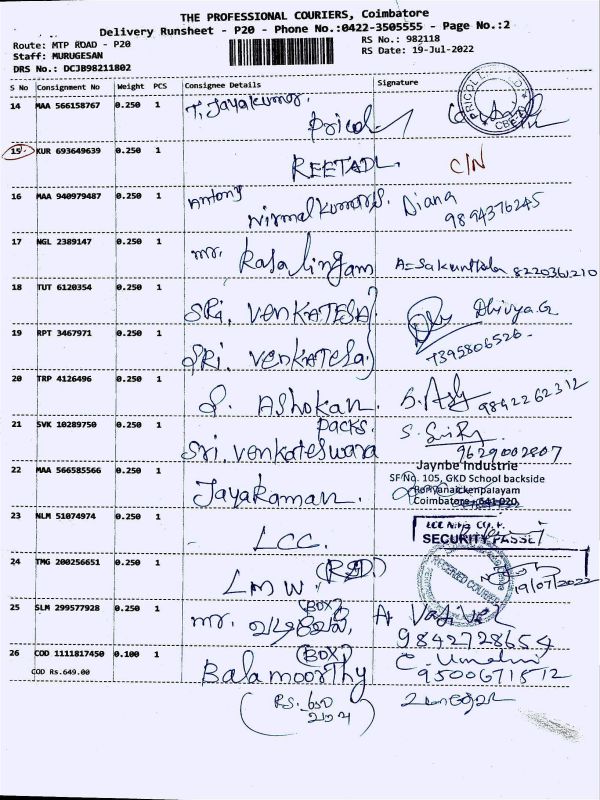 THE PROFESSIONAL COURIERS, Coimbatore
Delivery Runsheet - P20 - Phone No.:0422-3505555 - Page No.:2
Route: MTP ROAD - P20
RS No.: 982118
Staff: MURUGESAN
RS Date: 19-Jul-2022
DRS No.: DCJB98211802
S No Consignment No Weight PCS Consignee Details Signature
14 MAA 566158767 0.250 1 T. Jayakumar.
Pricol
15 KUR 693649639 0.250 1 REETADL. C/N
16 MAA 940979487 0.250 1 Antony
Nirmal Kumar S. Diana
9894376245
17 NGL 2389147 0.250 1 mr. Rasalingam A=Sakunthala 8220361210
18 TUT 6120354 0.250 1 SRI. VENKATESA Dhivya.G
19 RPT 3467971 0.250 1 SRI. VENKATESA 7395806526
20 TRP 4126496 0.250 1 S. ASHOKAN. 9842262312
21 SVK 10289750 0.250 1 Packs.
Sri. Venkateswara 9629002807
22 MAA 566585566 0.250 1 Jayaraman.
Jaynbe Industrie
SF No. 105, GKD School backside
Coimbatore - 641 020
23 NLM 51074974 0.250 1 LCC.
SECURITY
24 TMG 200256651 0.250 1 LMW.
RECEIVED COURIER
19/07/2022
25 SLM 299577928 0.250 1 (BOX)
mr. A Vadivel
9842728654
26 COD 1111817450 0.100 1 (BOX)
COD Rs.649.00 Balamoorthy
9500671512